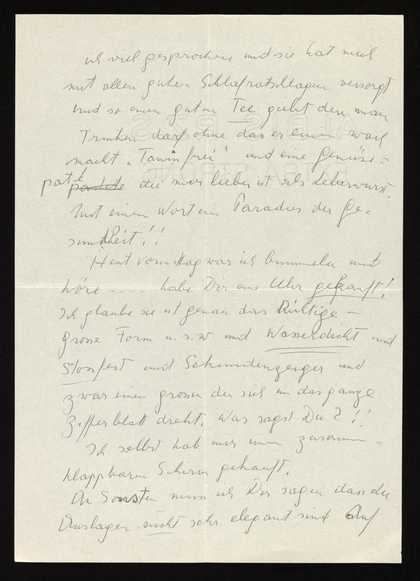 ich viel gesprochen und sie hat mich
mit allen guten Schlafratschlägen versorgt
und so einen guten Tee giebt den man
Trinken darf ohne das er einen wach
macht „Taninfrei" und eine Gemüse-
patè die mir lieber ist als Leberwurst.
Mit einem Wort ein Paradies der Ge-
sundheit!!
Heut Vormittag war ich bummeln und
höre ...... habe Dir eine Uhr gekauft!
Ich glaube sie ist genau das Richtige –
Grosse Form u.s.w und Wasserdicht und
Stossfest und Sekundenzeiger und
zwar einen grossen der sich um das ganze
Zifferblatt dreht. Was sagst Du?!!
Ich selbst hab mir einen zusammen-
klappbaren Schirm gekauft.
Ansonsten muss ich Dir sagen dass die
Auslagen nicht sehr elegant sind Auf